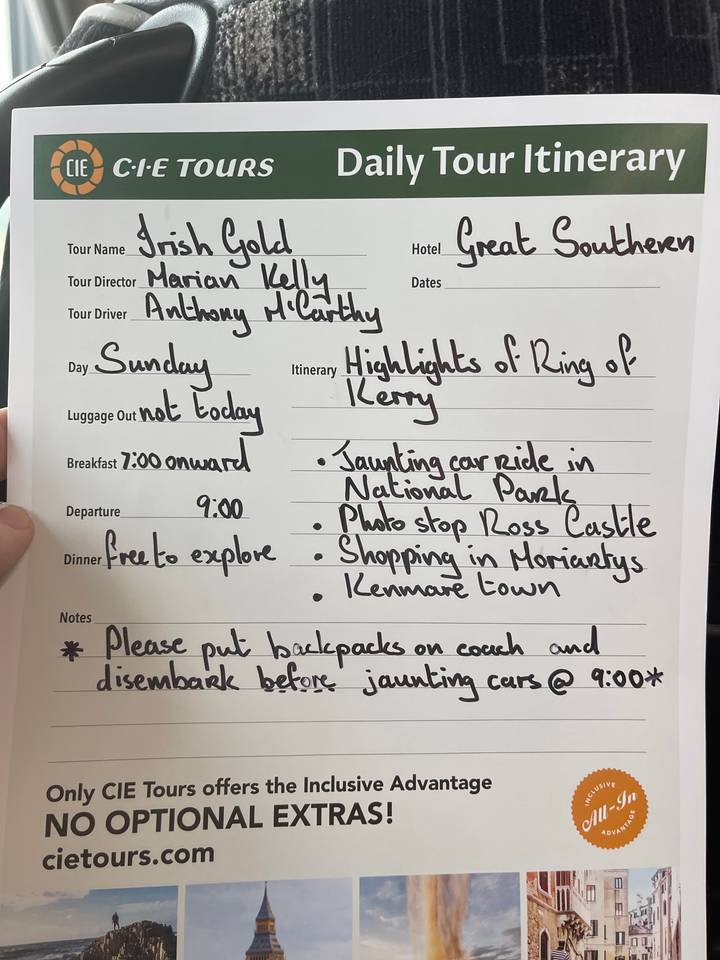 CIE C·I·E TOURS Daily Tour Itinerary
Tour Name Irish Gold Hotel Great Southeren
Tour Director Marian Kelly Dates
Tour Driver Anthony McCarthy
Day Sunday Itinerary Highlights of Ring of
Kerry
Luggage Out not today
Breakfast 7:00 onward • Jaunting car ride in
National Park
Departure 9:00 • Photo stop Ross Castle
Dinner free to explore • Shopping in Moriartys
• Kenmare town
Notes
* Please put backpacks on coach and
disembark before jaunting cars @ 9:00*
Only CIE Tours offers the Inclusive Advantage
NO OPTIONAL EXTRAS!
cietours.com
INCLUSIVE
All-In
ADVANTAGE